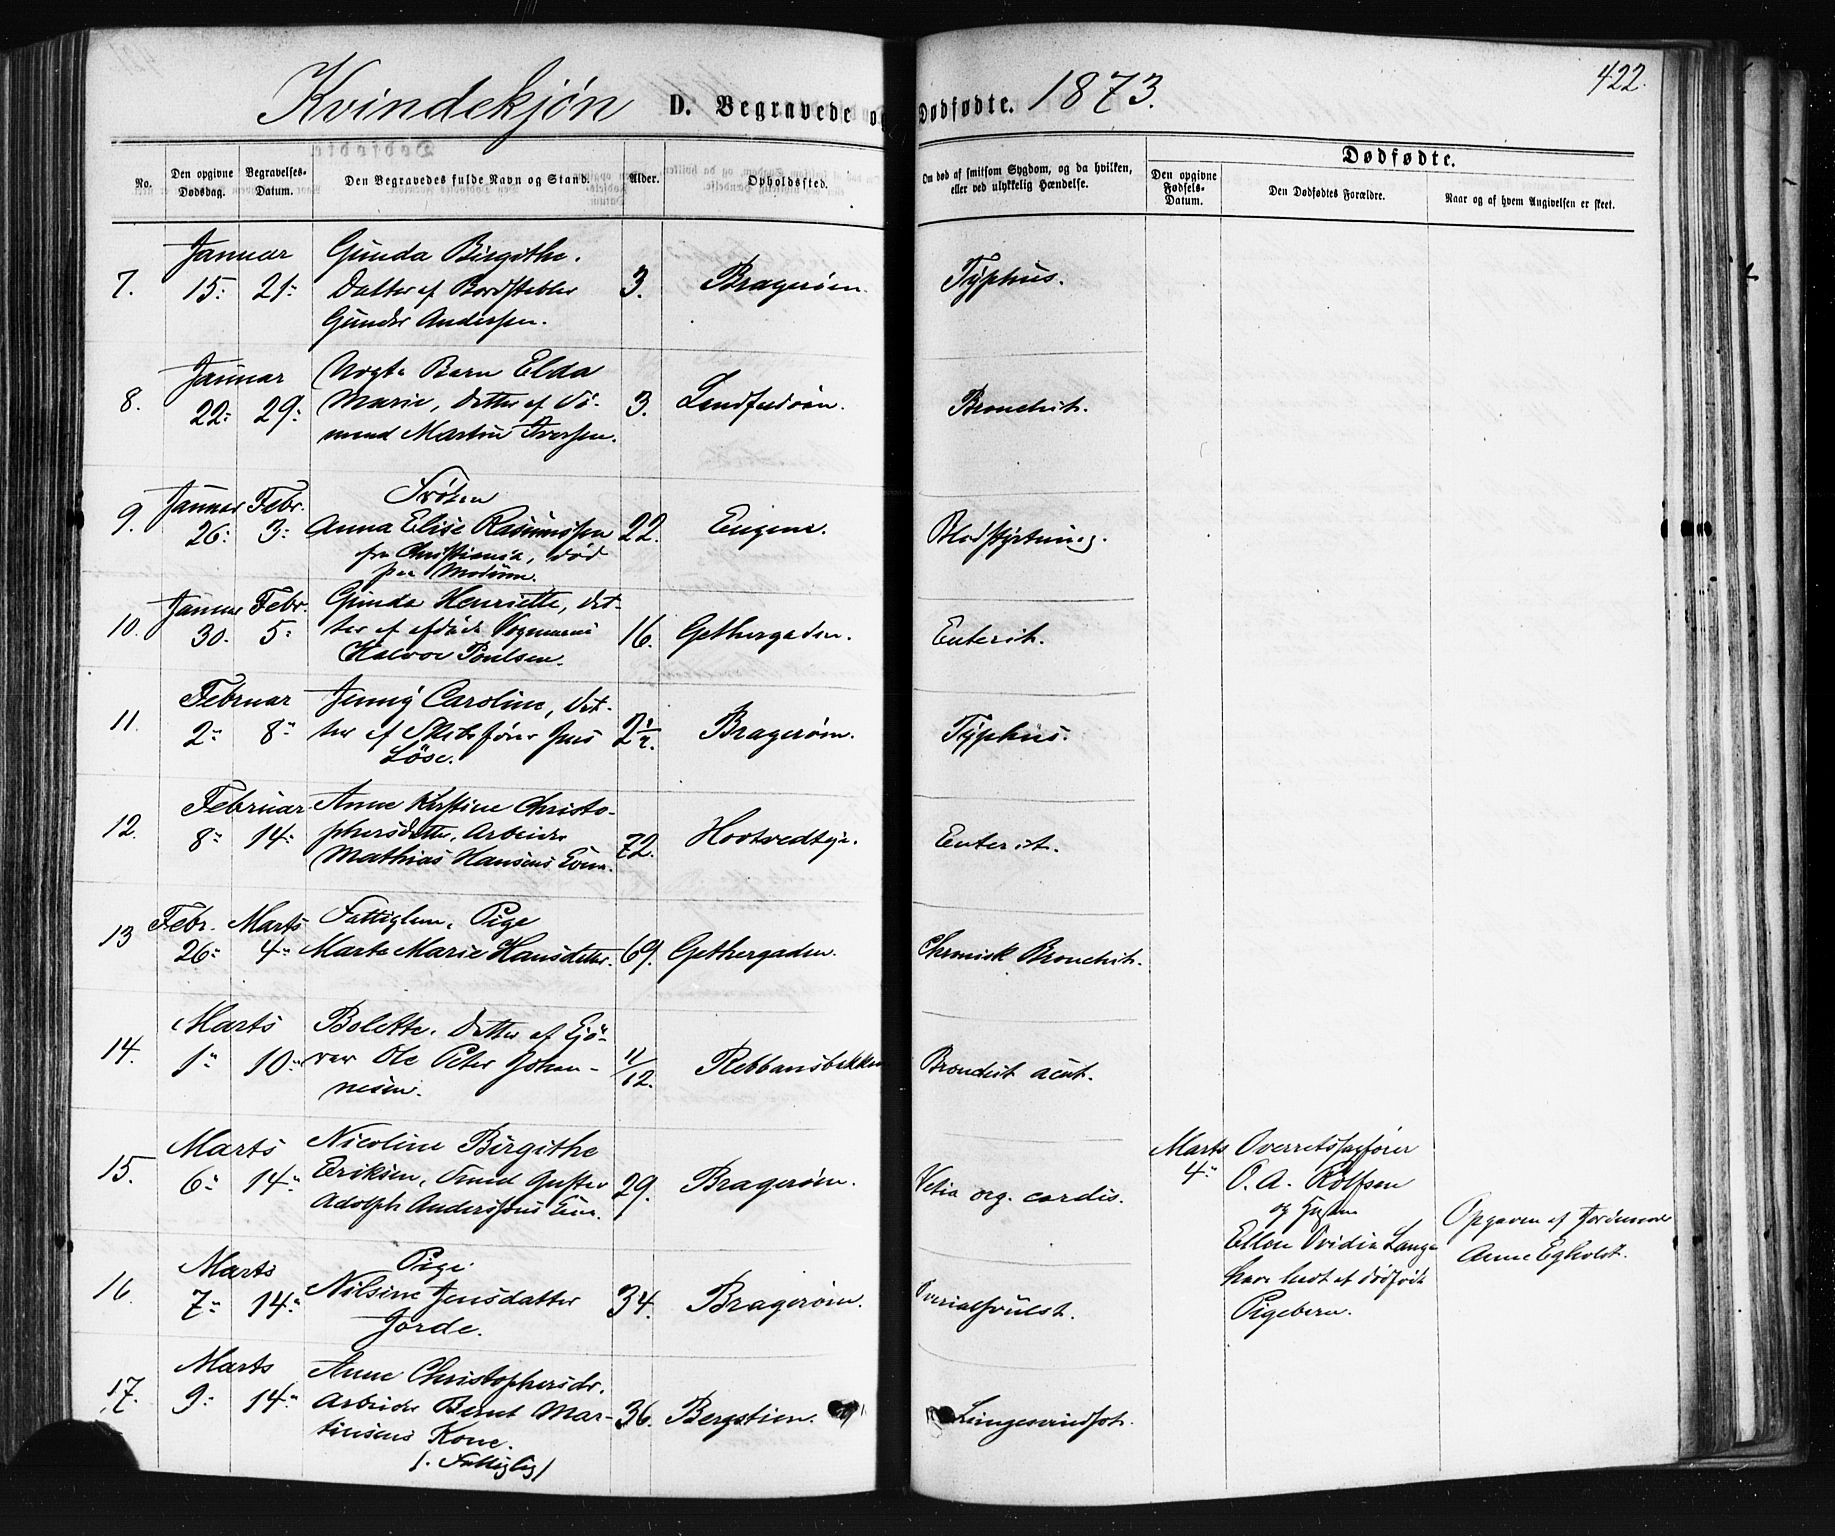 422.
Kvindekjøn D. Begravede og Dødfødte. 1873.
No.
Den opgivne Dødsdag.
Begravelses-Datum.
Den Begravedes fulde Navn og Stand.
Alder.
Opholdssted.
Om død af smitsom Sygdom, og da hvilken, eller ved ulykkelig Hændelse.
Dødfødte.
Den opgivne Fødsels-Datum.
Den Dødfødtes Forældre.
Naar og af hvem Angivelsen er skeet.
7. Januar 15: 21: Gunda Birgithe.
Datter af Bordstabler
Gunder Andersen.
3. Bragerøen. Typhus.
8. Januar 22: 29: Barn Elda
Marie, Datter af
mand Martin Iversen.
3. Bronchit.
9. Januar 26: Febr. 3: Frøken
Anna Elise Rasmussen
fra Christiania, død
paa Modum.
22. Eugene. Blodstyrtning.
10. Januar 30. Febr. 5: Gunda Henriette, Dat-
ter af afdøde Vognmand
Halvor Poulsen.
16. Gethergaden. Enterit.
11. Februar 2: 8: Jenny Caroline, Dat-
ter af Skibsfører Jens
Löse.
2½. Bragerøen. Typhus.
12. Februar 8: 14: Anne Kirstine Christo-
phersdatter, Arbeider
Mathias Hansens Enke.
72. Enterit.
13 Febr. 26: Marts 4: Fattiglem, Pige
Marte Marie Hansdatter.
69. Gethergaden. Chronisk Bronchit.
14. Marts 1: 10: Bolette, Datter af Gjö-
rer Ole Peter Johan-
nesen.
11/12. Rebbansbakken Bronchit acut.
15. Marts 6: 14: Nicoline Birgithe
Eriksen, Smed Gustav
Adolph Anderssons
29. Bragerøen. Vitia org. cordis.
Marts 4: Overretssagfører
O. A. Rolfsen
og Hustru
Ellen Ovidia Lange
have havt et dødfødt
Pigebarn.
Opgaven af Jordemoder
Anne Egholdt.
16. Marts 7: 14: Pige
Nilsine Jensdatter
Jorde.
34. Bragerøen. Ovarialsvulst.
17. Marts 9: 14: Anne Christophersdr.
Arbeider Bernt Mar-
tinsens Kone.
/: Fattiglig /
36. Bergstien. Lungesvindsot.